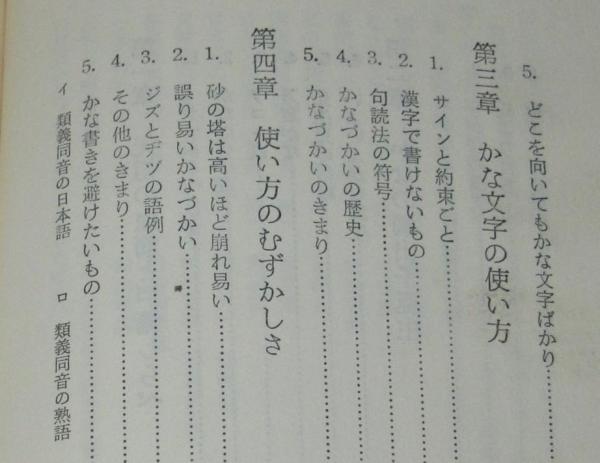 5. どこを向いてもかな文字ばかり…………
第三章 かな文字の使い方
1. サインと約束ごと…………
2. 漢字で書けないもの…………
3. 句読法の符号…………
4. かなづかいの歴史…………
5. かなづかいのきまり…………
第四章 使い方のむずかしさ
1. 砂の塔は高いほど崩れ易い…………
2. 誤り易いかなづかい…………
3. ジズとヂヅの語例…………
4. その他のきまり…………
5. かな書きを避けたいもの…………
イ 類義同音の日本語 ロ 類義同音の熟語